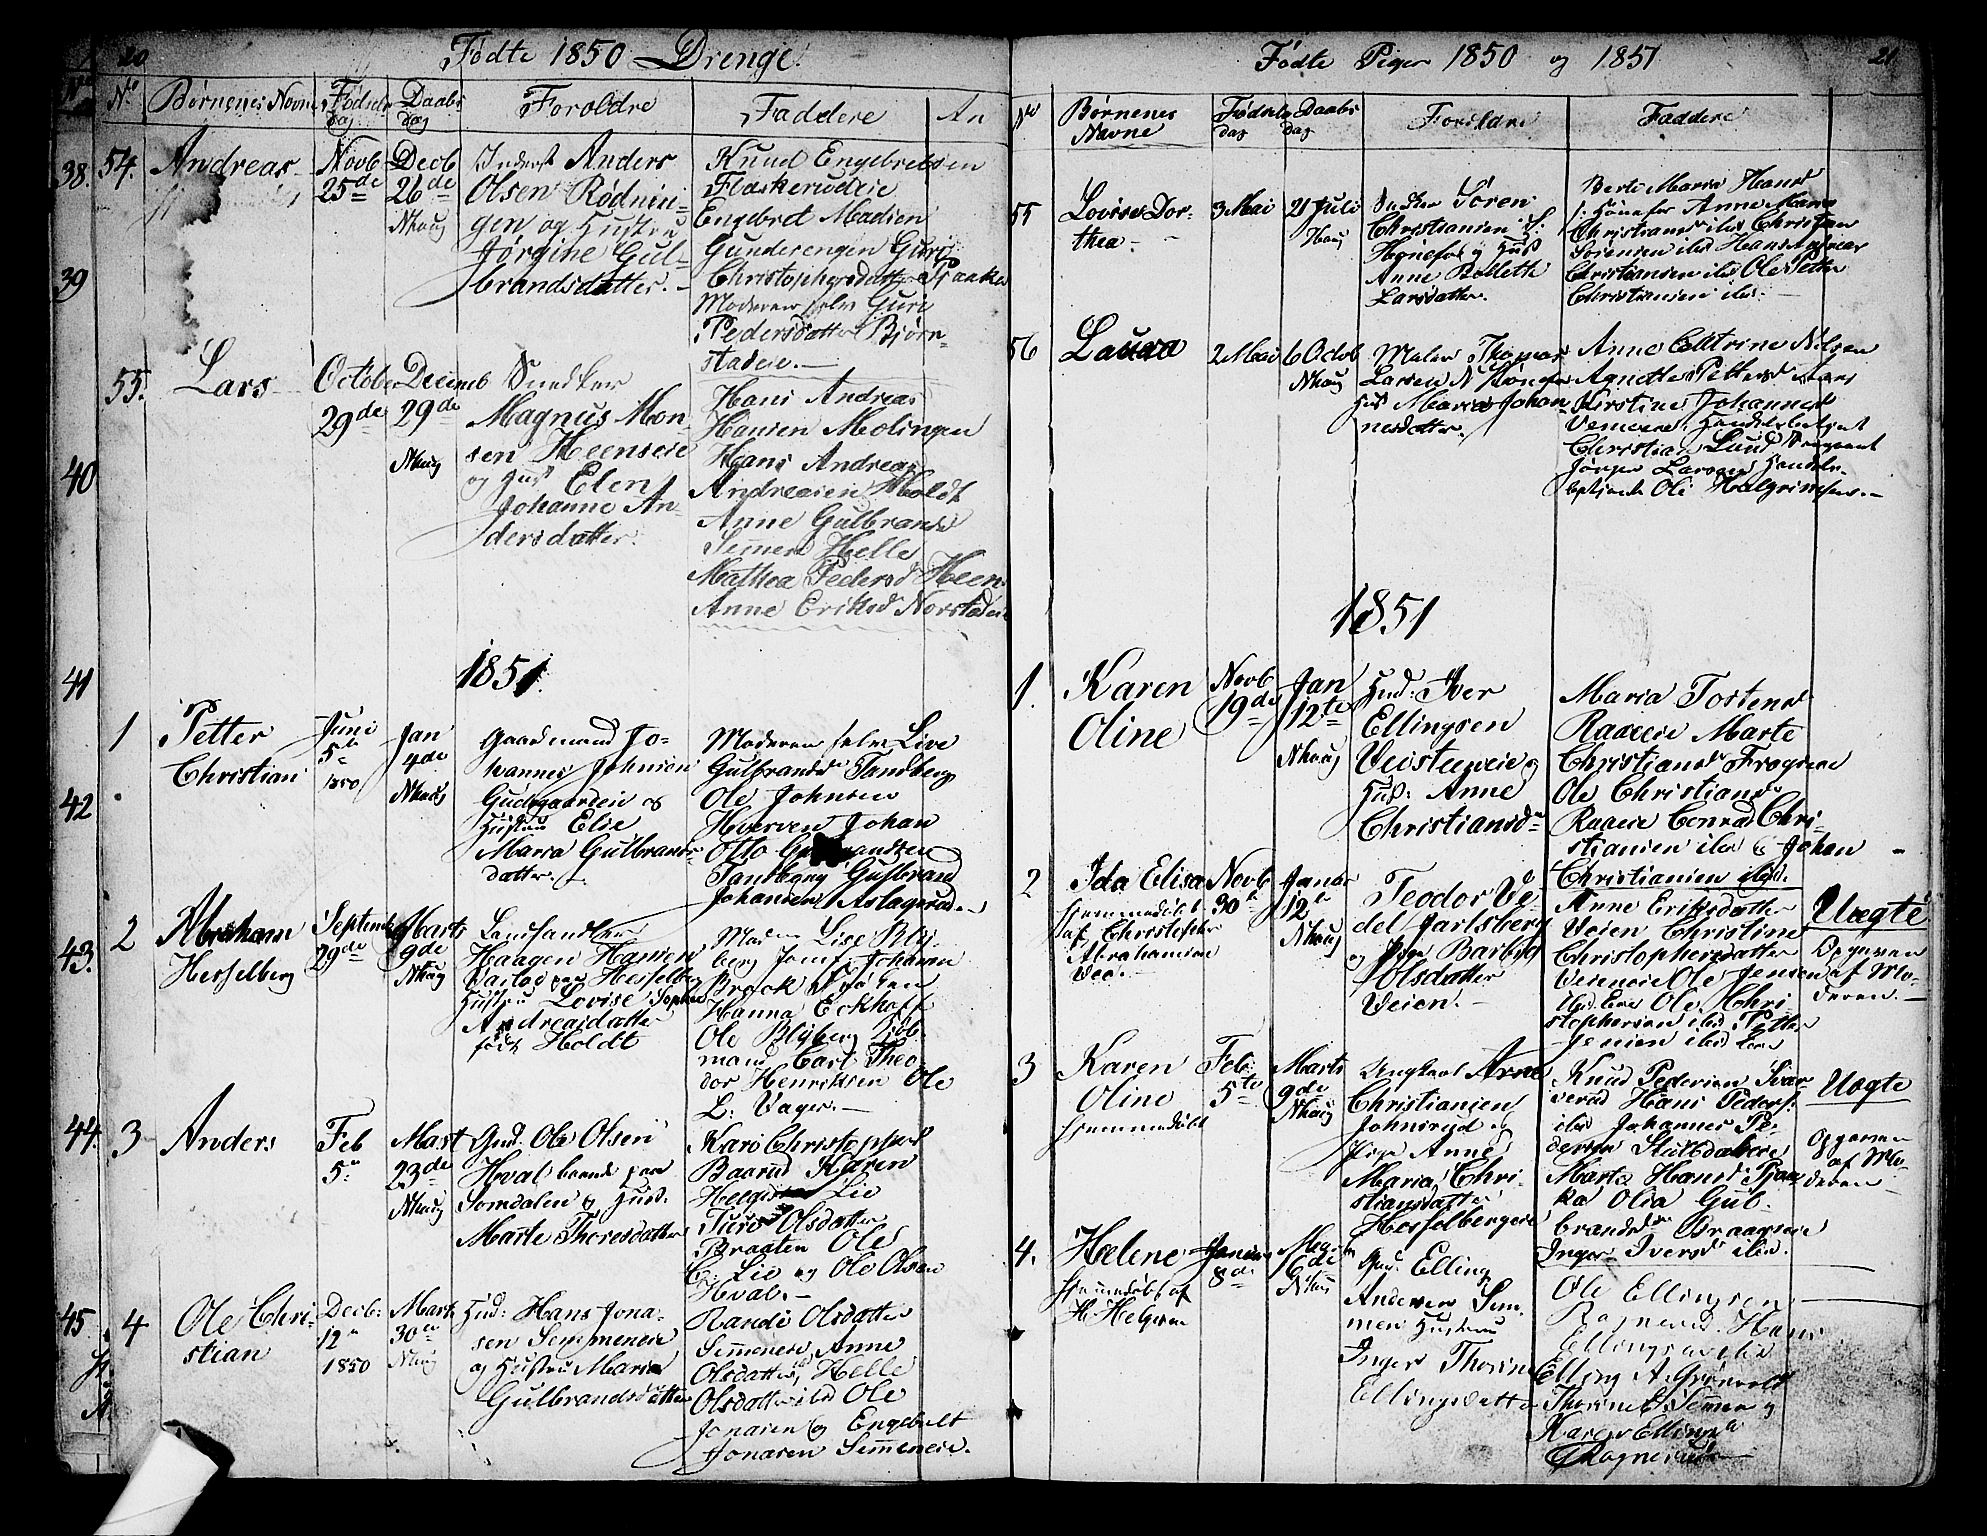 20
Fødte 1850 Drenge
No
Børnenes Navne
Fødsels
dag
Daabs
dag
Foroldre
Faddere
An
54.
Andreas
Novb
25de
Decb
26de
Nhoug
Inderst Anders
Olsen Rødnin-
gen og Hustru
Jørgine Gul-
brandsdatter.
Knud Engebretsen
Flaskerudeie
Engebret Madsen
Gunderengen Guri
Christophersdatter Praaker
Moderen selv Guri
Pedersdatter Bjørn-
stadeie.
55.
Lars
October
29de
Decemb
29de
Nhoug
Snedker
Magnus Mon-
sen Heenseie
og Hus Elen
Johanne An-
dersdatter.
Hans Andreas
Hansen Molingen
Hans Andreas
Andreasen Holdt
Anne Gulbrands
Semmen Helle
Mathea Pedersd Heen
Anne Eriksd Norstadeie
1851.
1
Petter
Christian
Juni
5te
1850
Jan
4de
Nhoug
Gaardmand Jo-
hannes Johnsen
Gudsgaardeie og
Hustru Elie
Maria Gulbrands-
datter.
Moderen selv Live
Gulbrandsd Tandberg
Ole Johnsen
Hverven Johan
Otto
Tandberg Gulbrand
Johansen Aslagsrud
2
Abraham
Hesselberg
Septemb
29de
Marts
9de
Nhoug
Landhandler
Haagen Hansen
Hesselberg
Hustru Lovise Sophie
Andreasdatter
født Holdt
Lise Bly-
berg Jomf Johanna
Brock Frøken
Hanna Eckhoff
Ole Blyberg
mand Carl Theo-
dor Henriksen Ole
L. Vager.
3
Anders
Feb
5te
Mart
23de
Nhoug
Gud. Ole Olsen
Hval boende paa
Somdalen og Hus.
Marte Thoresdatter
Kari Christophersd
Baarud Karen
Lie
Turi Olsdatter
Braaten Ole
Lie og Ole Olsen
Hval.
4
Ole Chri-
stian
Decb:
12te
1850
Marts
30te
Nhoug
Hus: Hans Jona-
sen Semmeneie
og Hustru Maria
Gulbrandsdatter
Randi Olsdatter
Semmeneie, Anne
Olsdatter, Helle
Olsdatter ibid Ole
Jonasen og Engebret
Jonasen Semmeneie.
38.
39
40
41
42
43.
44.
45
Fødte Piger 1850 og 1851
21
No
Børnenes
Navne
Fødsels
dag
Daabs
dag
Foreldre
Faddere
55
Lovise Dor-
thea.
3 Mai
21 Juli
Houg
Snedker Søren
Christiansen i S:
Hønefos og Hus
Anne Bollette
Larsdatter.
Berte Maria Hansd
S: Hønefos Anne Maria
Christiansd ibid Christian
Sørensen ibid Hans Andreas
Christiansen ibid Ole Petter
Christiansen ibid.
56
Laura
2 Mai
6 Octob
Nhoug
Maler Thomas
Larsen N Hønefos
Hus Maria Johan-
nesdatter.
Anne Cattrine Nilsen
Agnette Pettersd
Kirstine Johannesd
Vemeeie, Handelsbetjent
Christian Lund
Jørgen Larsen Handels-
betjente Ole Halgrimsen.
1851
1.
Karen
Oline
Novb
19de
Jan
12te
Nhoug
Hus: Iver
Ellingsen
Veisteneie og
Hus: Anne
Christiansd
Maria Tostensd
Raaeeie Marte
Christiansd Frogneie
Ole Christians
Raaeeie Conrad Chri-
stiansen ibid og Johan
Christiansen ibid.
2
Ida Elisa
hjemmedøbt
af Christopher
Abrahamsen
Vee.
Novb
30te
Januar
12te
Nhoug
Teodor Ve-
del Jarlsberg
og Pige Barbra
Olsdatter
Veien.
Anne Eriksdatter
Veien Christine
Christophersdatter
Veieneie Ole Jensen
ibid. Eie Ole Chri-
stophersen ibid Petter
Jensen ibid Eie
Uægte
Opgiven
af Mo-
deren.
3
Karen
Oline
hjemmedøbt
Feb
5te
Marts
9de
Nhoug
Ungkarl Arne
Christiansen
Johnsrud og
Pige Anne
Maria Chri-
stiansdatter
Hesselbergeie
Knud Pedersen Svar-
verud Hans Peders:
ibid Johannes Pe-
dersen Stubdaleie
Marte Hansd Praa-
ka Olia Gul-
brandsdr Braageneie
Inger Iversd ibid.
Uægte
Opgiven
af Mo-
deren
4.
Helene
hjemmedøbt af
H. Helgesen
Januar
8de
6de
Nhoug
Gud. Elling
Andersen Sem-
men Hustru
Inger Thorine
Ellingsdatter
Ole Ellingsen
Ragnerud. Hans
Ellingsen ibid
Elling A. Grønvold
Thorine Semmen og
Karen Ellingsd
Ragnerud